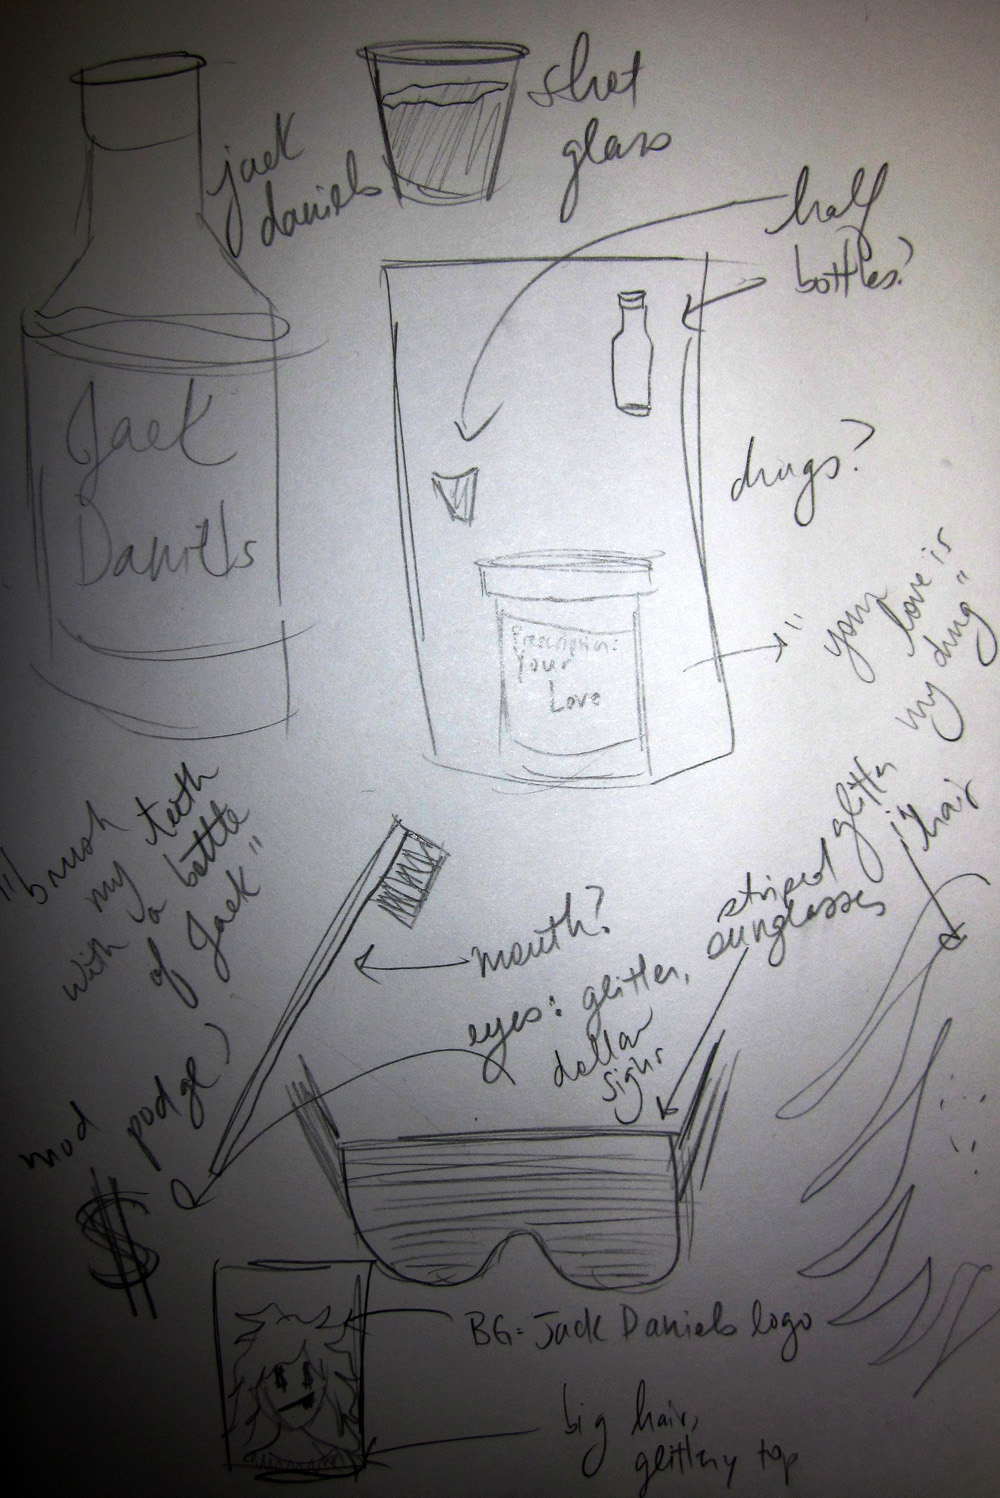 jack
daniels
shot
glass
half
bottles?
Jack
Daniels
drugs?
Prescription:
Your
Love
"your
love is
my drug"
"brush
my teeth
with a bottle
of Jack"
mouth?
eyes: glitter,
dollar
signs
striped
sunglasses
glitter
in
hair
mod
podge)
$
BG = Jack Daniels logo
big hair,
glittery top